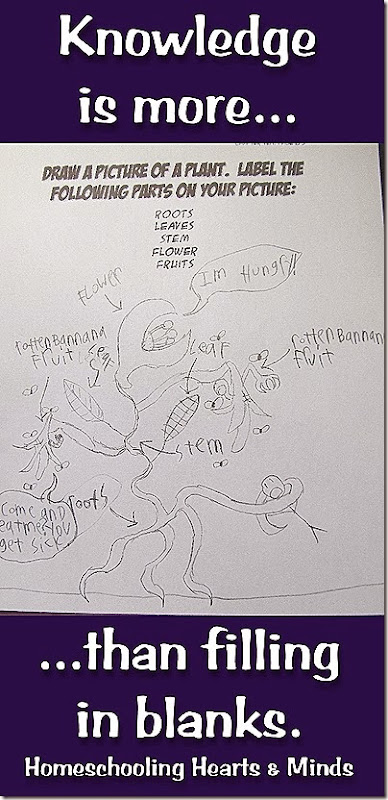 Knowledge
is more...
DRAW A PICTURE OF A PLANT. LABEL THE
FOLLOWING PARTS ON YOUR PICTURE:
ROOTS
LEAVES
STEM
FLOWER
FRUITS
Flower
I'm Hungry!!
rotten Bannana
fruit
Leaf
Leaf
rotten Bannan
fruit
stem
roots
Come and
eat me, you
get sick.
...than filling
in blanks.
Homeschooling Hearts & Minds